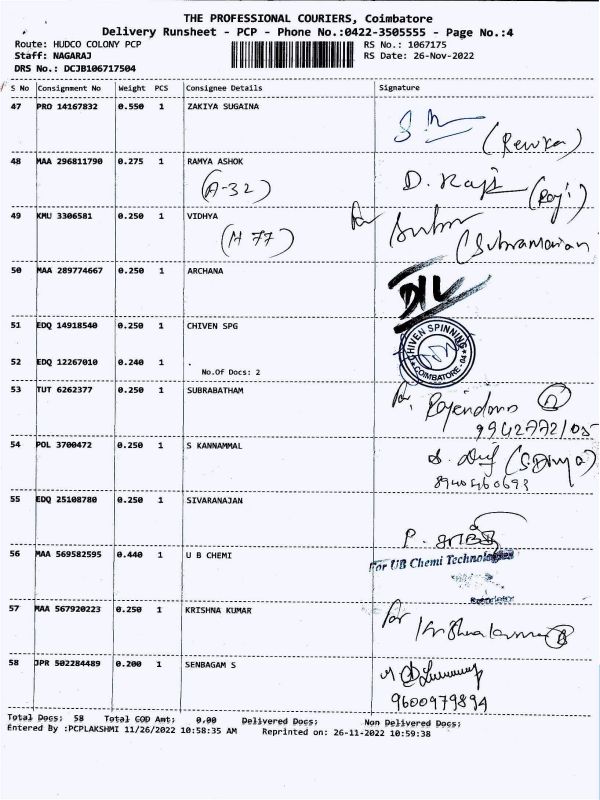 THE PROFESSIONAL COURIERS, Coimbatore
Delivery Runsheet - PCP - Phone No.:0422-3505555 - Page No.:4
Route: HUDCO COLONY PCP RS No.: 1067175
Staff: NAGARAJ RS Date: 26-Nov-2022
DRS No.: DCJB106717504
S No Consignment No Weight PCS Consignee Details Signature
47 PRO 14167832 0.550 1 ZAKIYA SUGAINA
(Renuka)
48 MAA 296811790 0.275 1 RAMYA ASHOK
(A-32) D. Raji (Raji)
49 KMU 3306581 0.250 1 VIDHYA
(A 77) (Subramanian
50 MAA 289774667 0.250 1 ARCHANA
D/L
51 EDQ 14918540 0.250 1 CHIVEN SPG
CHIVEN SPINNING
COIMBATORE
52 EDQ 12267010 0.240 1 .
No.Of Docs: 2
53 TUT 6262377 0.250 1 SUBRABATHAM
54 POL 3700472 0.250 1 S KANNAMMAL
55 EDQ 25108780 0.250 1 SIVARANAJAN
56 MAA 569582595 0.440 1 U B CHEMI
For UB Chemi Technologies
57 MAA 567920223 0.250 1 KRISHNA KUMAR
for
58 JPR 502284489 0.200 1 SENBAGAM S
9600979894
Total Docs: 58 Total COD Amt: 0.00 Delivered Docs: Non Delivered Docs:
Entered By :PCPLAKSHMI 11/26/2022 10:58:35 AM Reprinted on: 26-11-2022 10:59:38